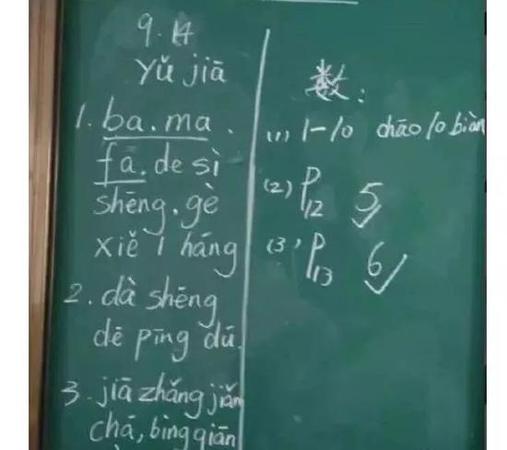 9.14
Yǔ jiā
1. ba. ma.
fā. de sì
shēng. gè
xiě 1 háng
2. dà shēng
dē pīng dú.
3. jiā zhǎng jiǎn
chá, bìng qiān
数:
(1) 1-10 chāo 10 biàn
(2) P12 5
(3) P13 6